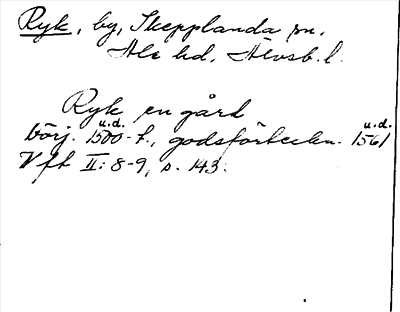 Ryk, by, Skepplanda sn,
Ale hd, Älvsb. l.
Ryk en gård
u.d. u.d.
börj. 1500-t., godsförteckn. 1561
Vft II: 8-9, s. 143.